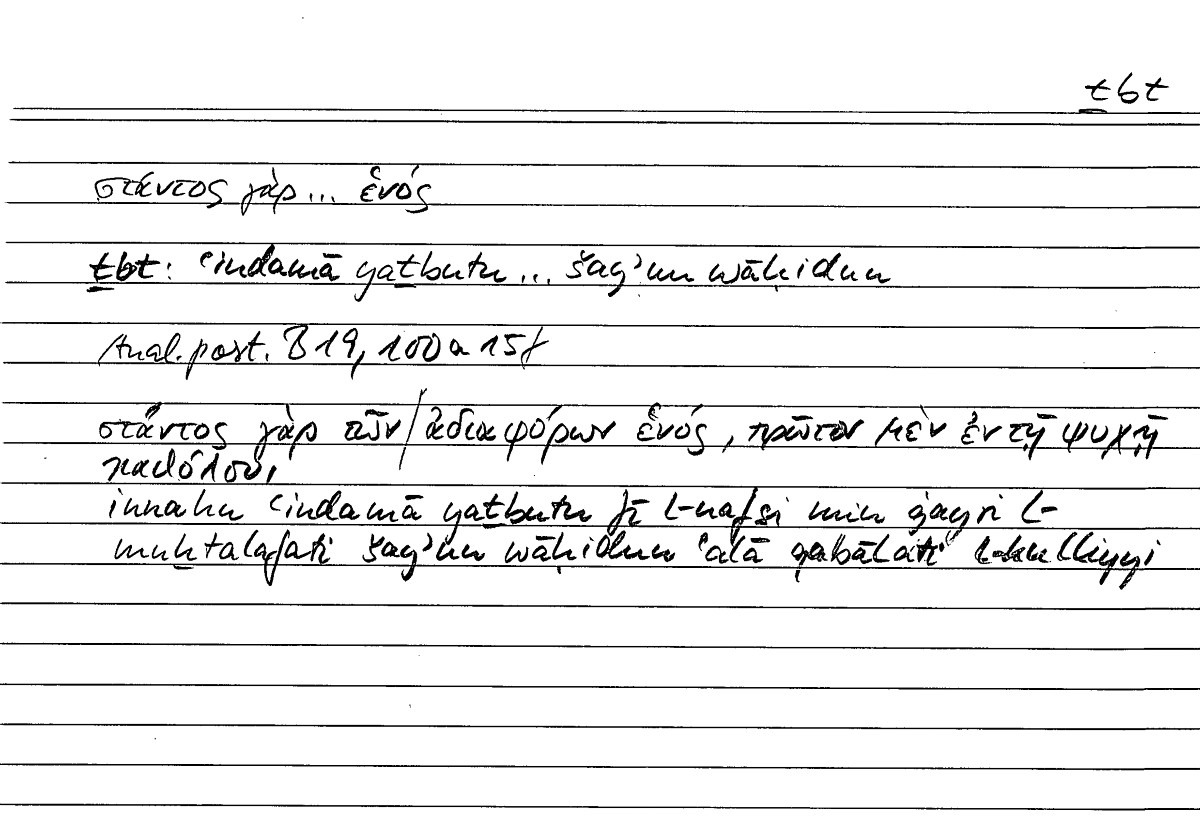 ṯbt
στάντος γὰρ ... ἑνός
ṯbt: ʿindamā yaṯbutu ... šayʾun wāḥidun
Anal. post. B 19, 100 a 15f
στάντος γὰρ τῶν / ἀδιαφόρων ἑνός, πρῶτον μὲν ἐν τῇ ψυχῇ
καθόλου,
innahu ʿindamā yaṯbutu fī l-nafsi min ġayri l-
muḫtalafati šayʾun wāḥidun ʿalā l-kulliyyi